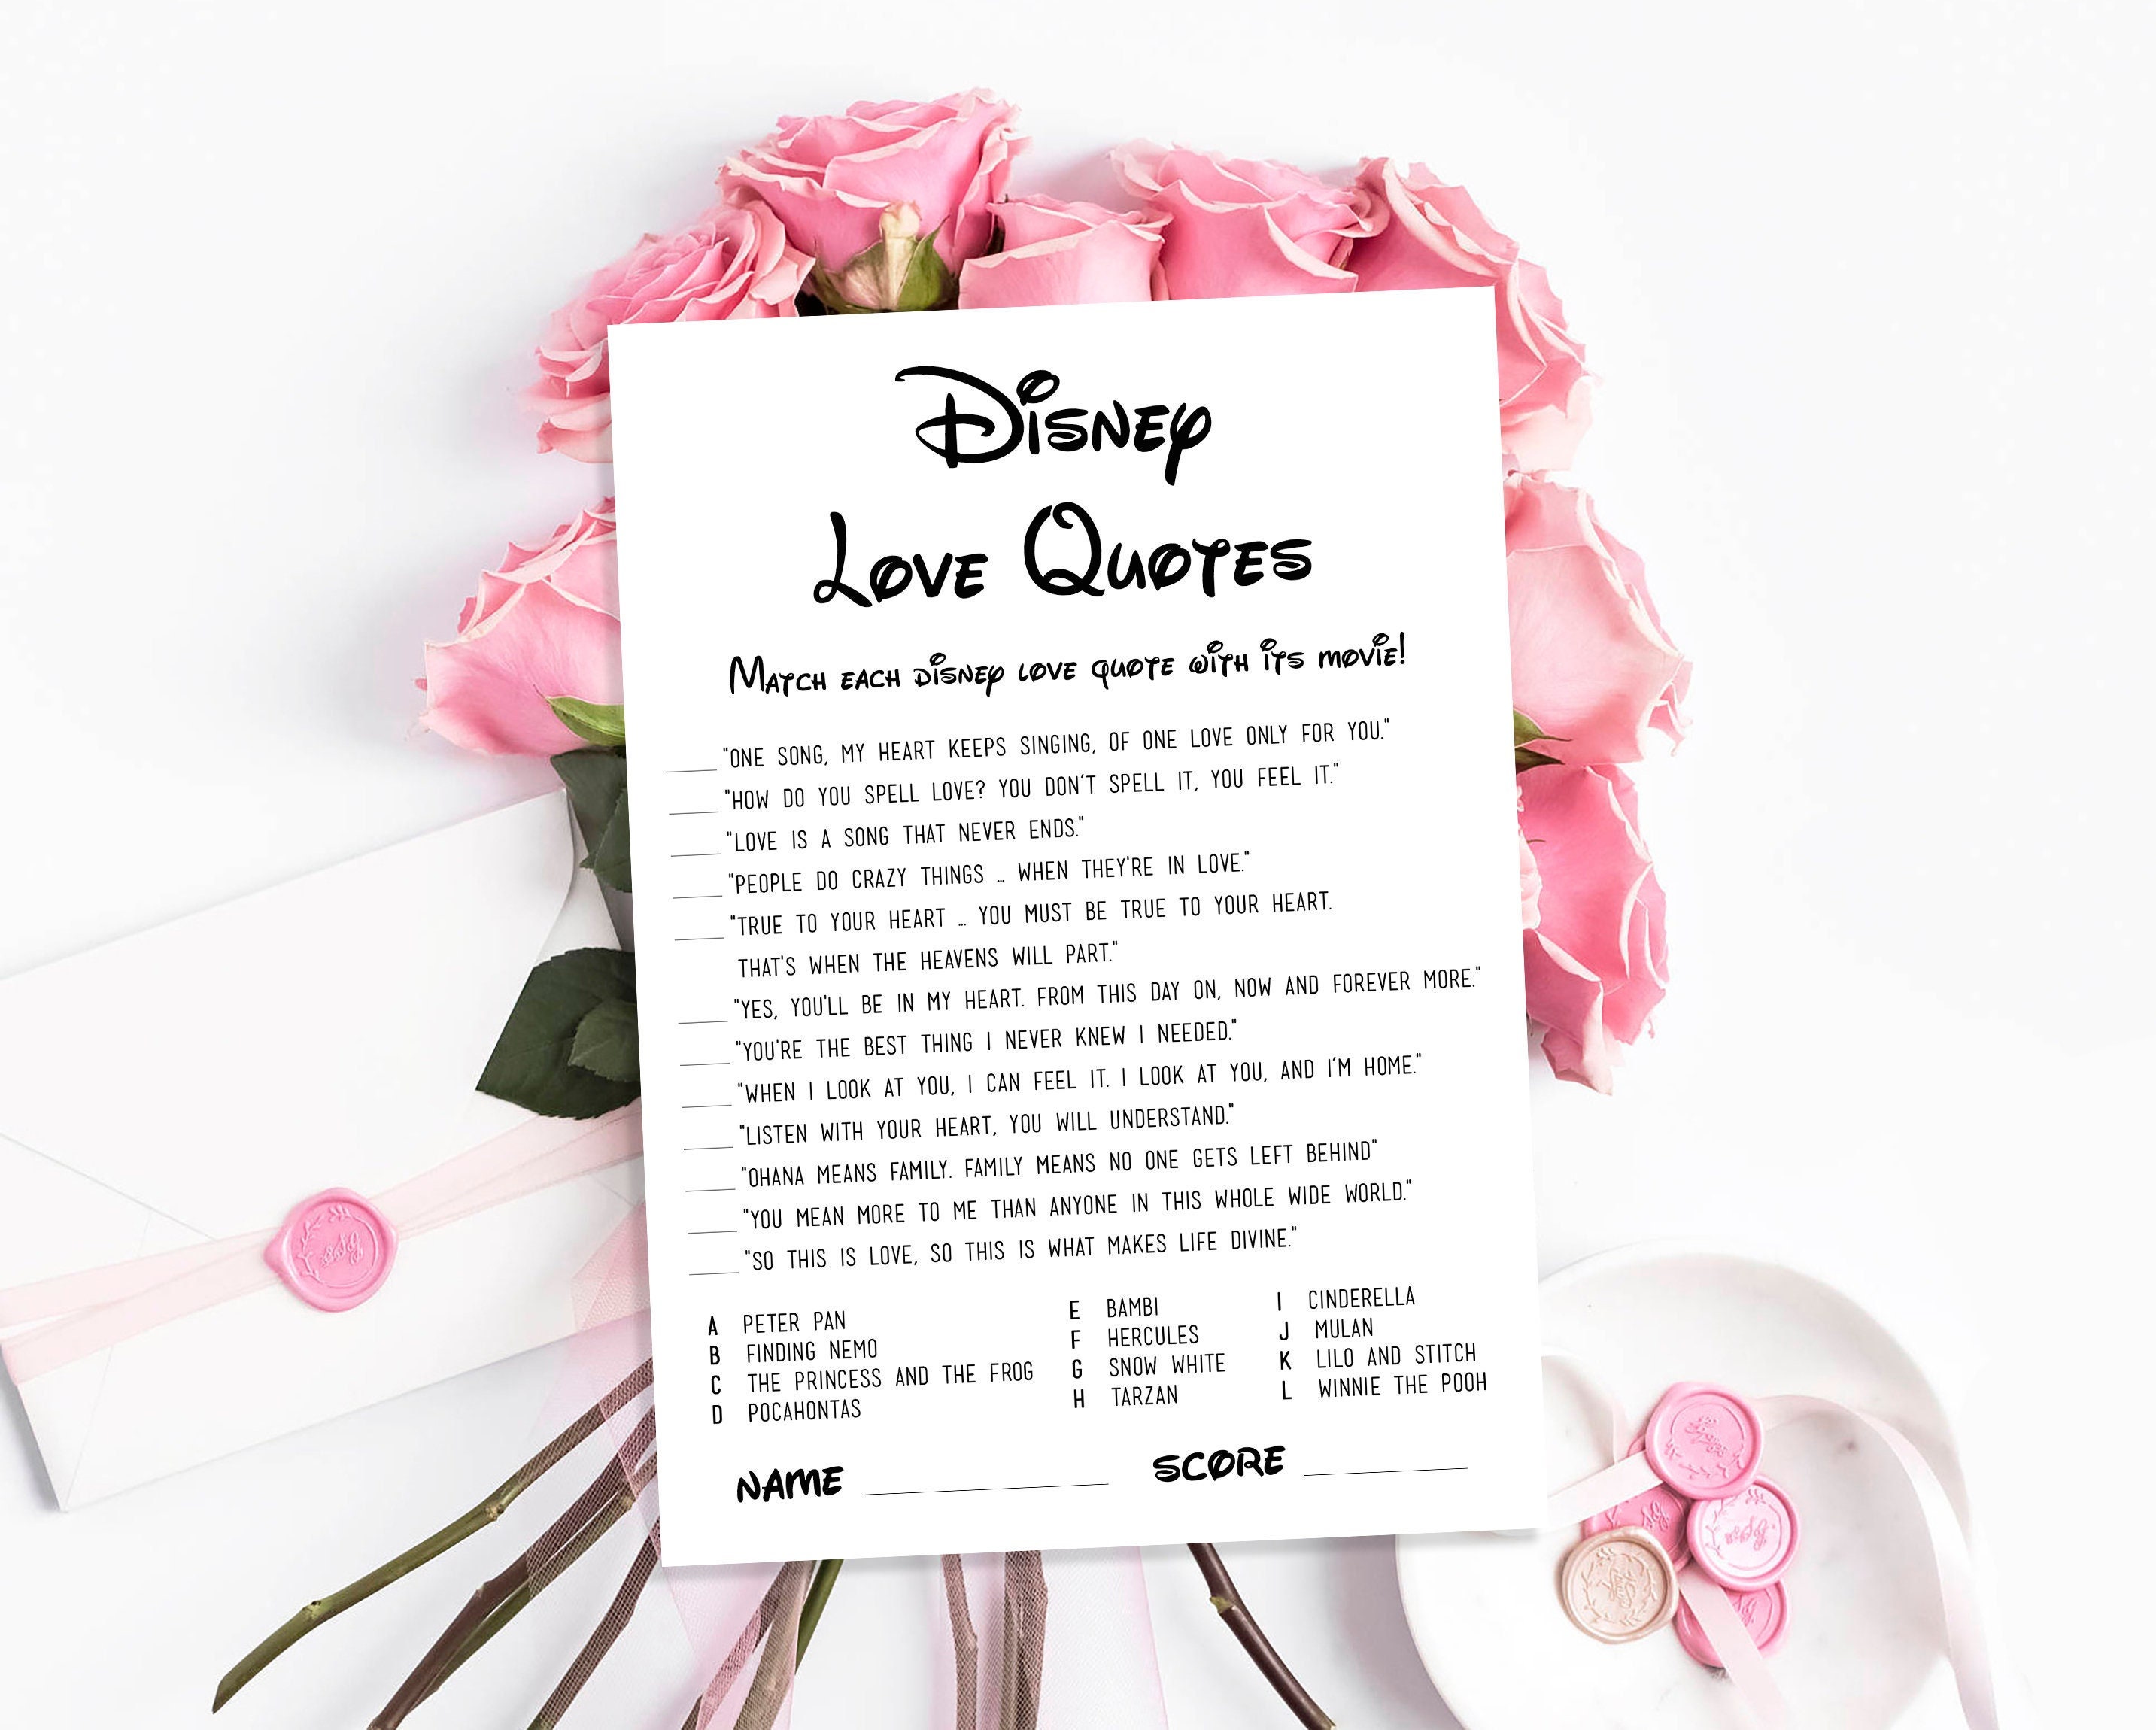 Disney
Love Quotes
Match each disney love quote with its movie!
____ "ONE SONG, MY HEART KEEPS SINGING, OF ONE LOVE ONLY FOR YOU."
____ "HOW DO YOU SPELL LOVE? YOU DON'T SPELL IT, YOU FEEL IT."
____ "LOVE IS A SONG THAT NEVER ENDS."
____ "PEOPLE DO CRAZY THINGS ... WHEN THEY'RE IN LOVE."
____ "TRUE TO YOUR HEART ... YOU MUST BE TRUE TO YOUR HEART.
THAT'S WHEN THE HEAVENS WILL PART."
____ "YES, YOU'LL BE IN MY HEART. FROM THIS DAY ON, NOW AND FOREVER MORE."
____ "YOU'RE THE BEST THING I NEVER KNEW I NEEDED."
____ "WHEN I LOOK AT YOU, I CAN FEEL IT. I LOOK AT YOU, AND I'M HOME."
____ "LISTEN WITH YOUR HEART, YOU WILL UNDERSTAND."
____ "OHANA MEANS FAMILY. FAMILY MEANS NO ONE GETS LEFT BEHIND"
____ "YOU MEAN MORE TO ME THAN ANYONE IN THIS WHOLE WIDE WORLD."
____ "SO THIS IS LOVE, SO THIS IS WHAT MAKES LIFE DIVINE."
A PETER PAN
B FINDING NEMO
C THE PRINCESS AND THE FROG
D POCAHONTAS
E BAMBI
F HERCULES
G SNOW WHITE
H TARZAN
I CINDERELLA
J MULAN
K LILO AND STITCH
L WINNIE THE POOH
NAME ____________ SCORE ________